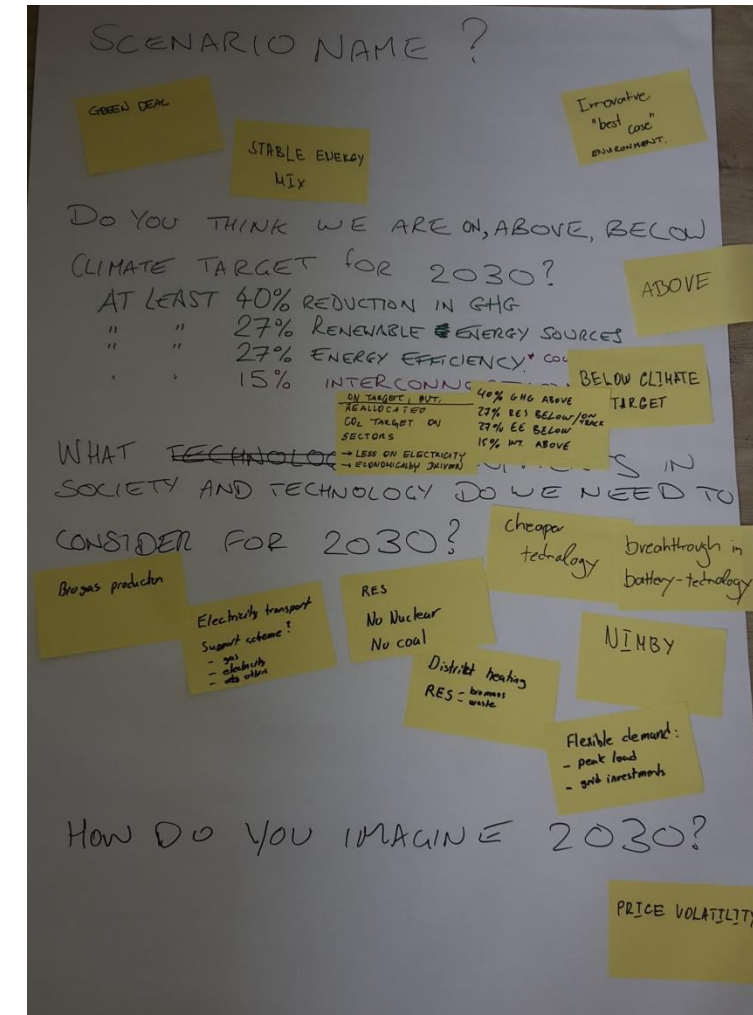 SCENARIO NAME ?
GREEN DEAL
STABLE ENERGY
MIX
Innovative
"best case"
ENVIRONMENT.
DO YOU THINK WE ARE ON, ABOVE, BELOW
CLIMATE TARGET FOR 2030?
ABOVE
AT LEAST 40% REDUCTION IN GHG
" " 27% RENEWABLE ENERGY SOURCES
" " 27% ENERGY EFFICIENCY*
" " 15% INTERCONN
BELOW CLIMATE
TARGET
ON TARGET, BUT.
REALLOCATED
CO2 TARGET ON
SECTORS
→ LESS ON ELECTRICITY
→ ECONOMICALLY DRIVEN
40% GHG ABOVE
27% RES BELOW/ON TRACK
27% EE BELOW
15% INT. ABOVE
WHAT TECHNOLOG S IN
SOCIETY AND TECHNOLOGY DO WE NEED TO
CONSIDER FOR 2030?
cheaper
technology
breakthrough in
battery-technology
Biogas production
Electricity transport
Support scheme?
- gas
- electricity
- others
RES
No Nuclear
No coal
NIMBY
District heating
RES - biomass
- waste
Flexible demand:
- peak load
- grid investments
HOW DO YOU IMAGINE 2030?
PRICE VOLATILITY